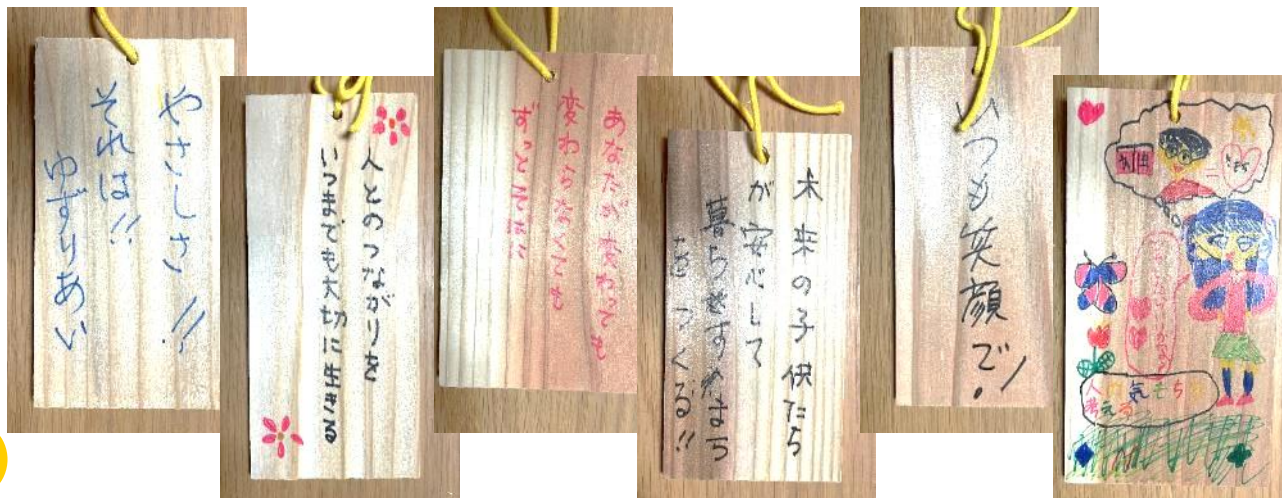 やさしさ!!
それは!!
ゆずりあい
人とのつながりを
いつまでも大切に生きる
あなたが変わっても
変わらなくても
ずっとそばに
未来の子供たち
が安心して
暮らせすすめまち
をつくる!!
いつも笑顔で!
人の気もちを
考える